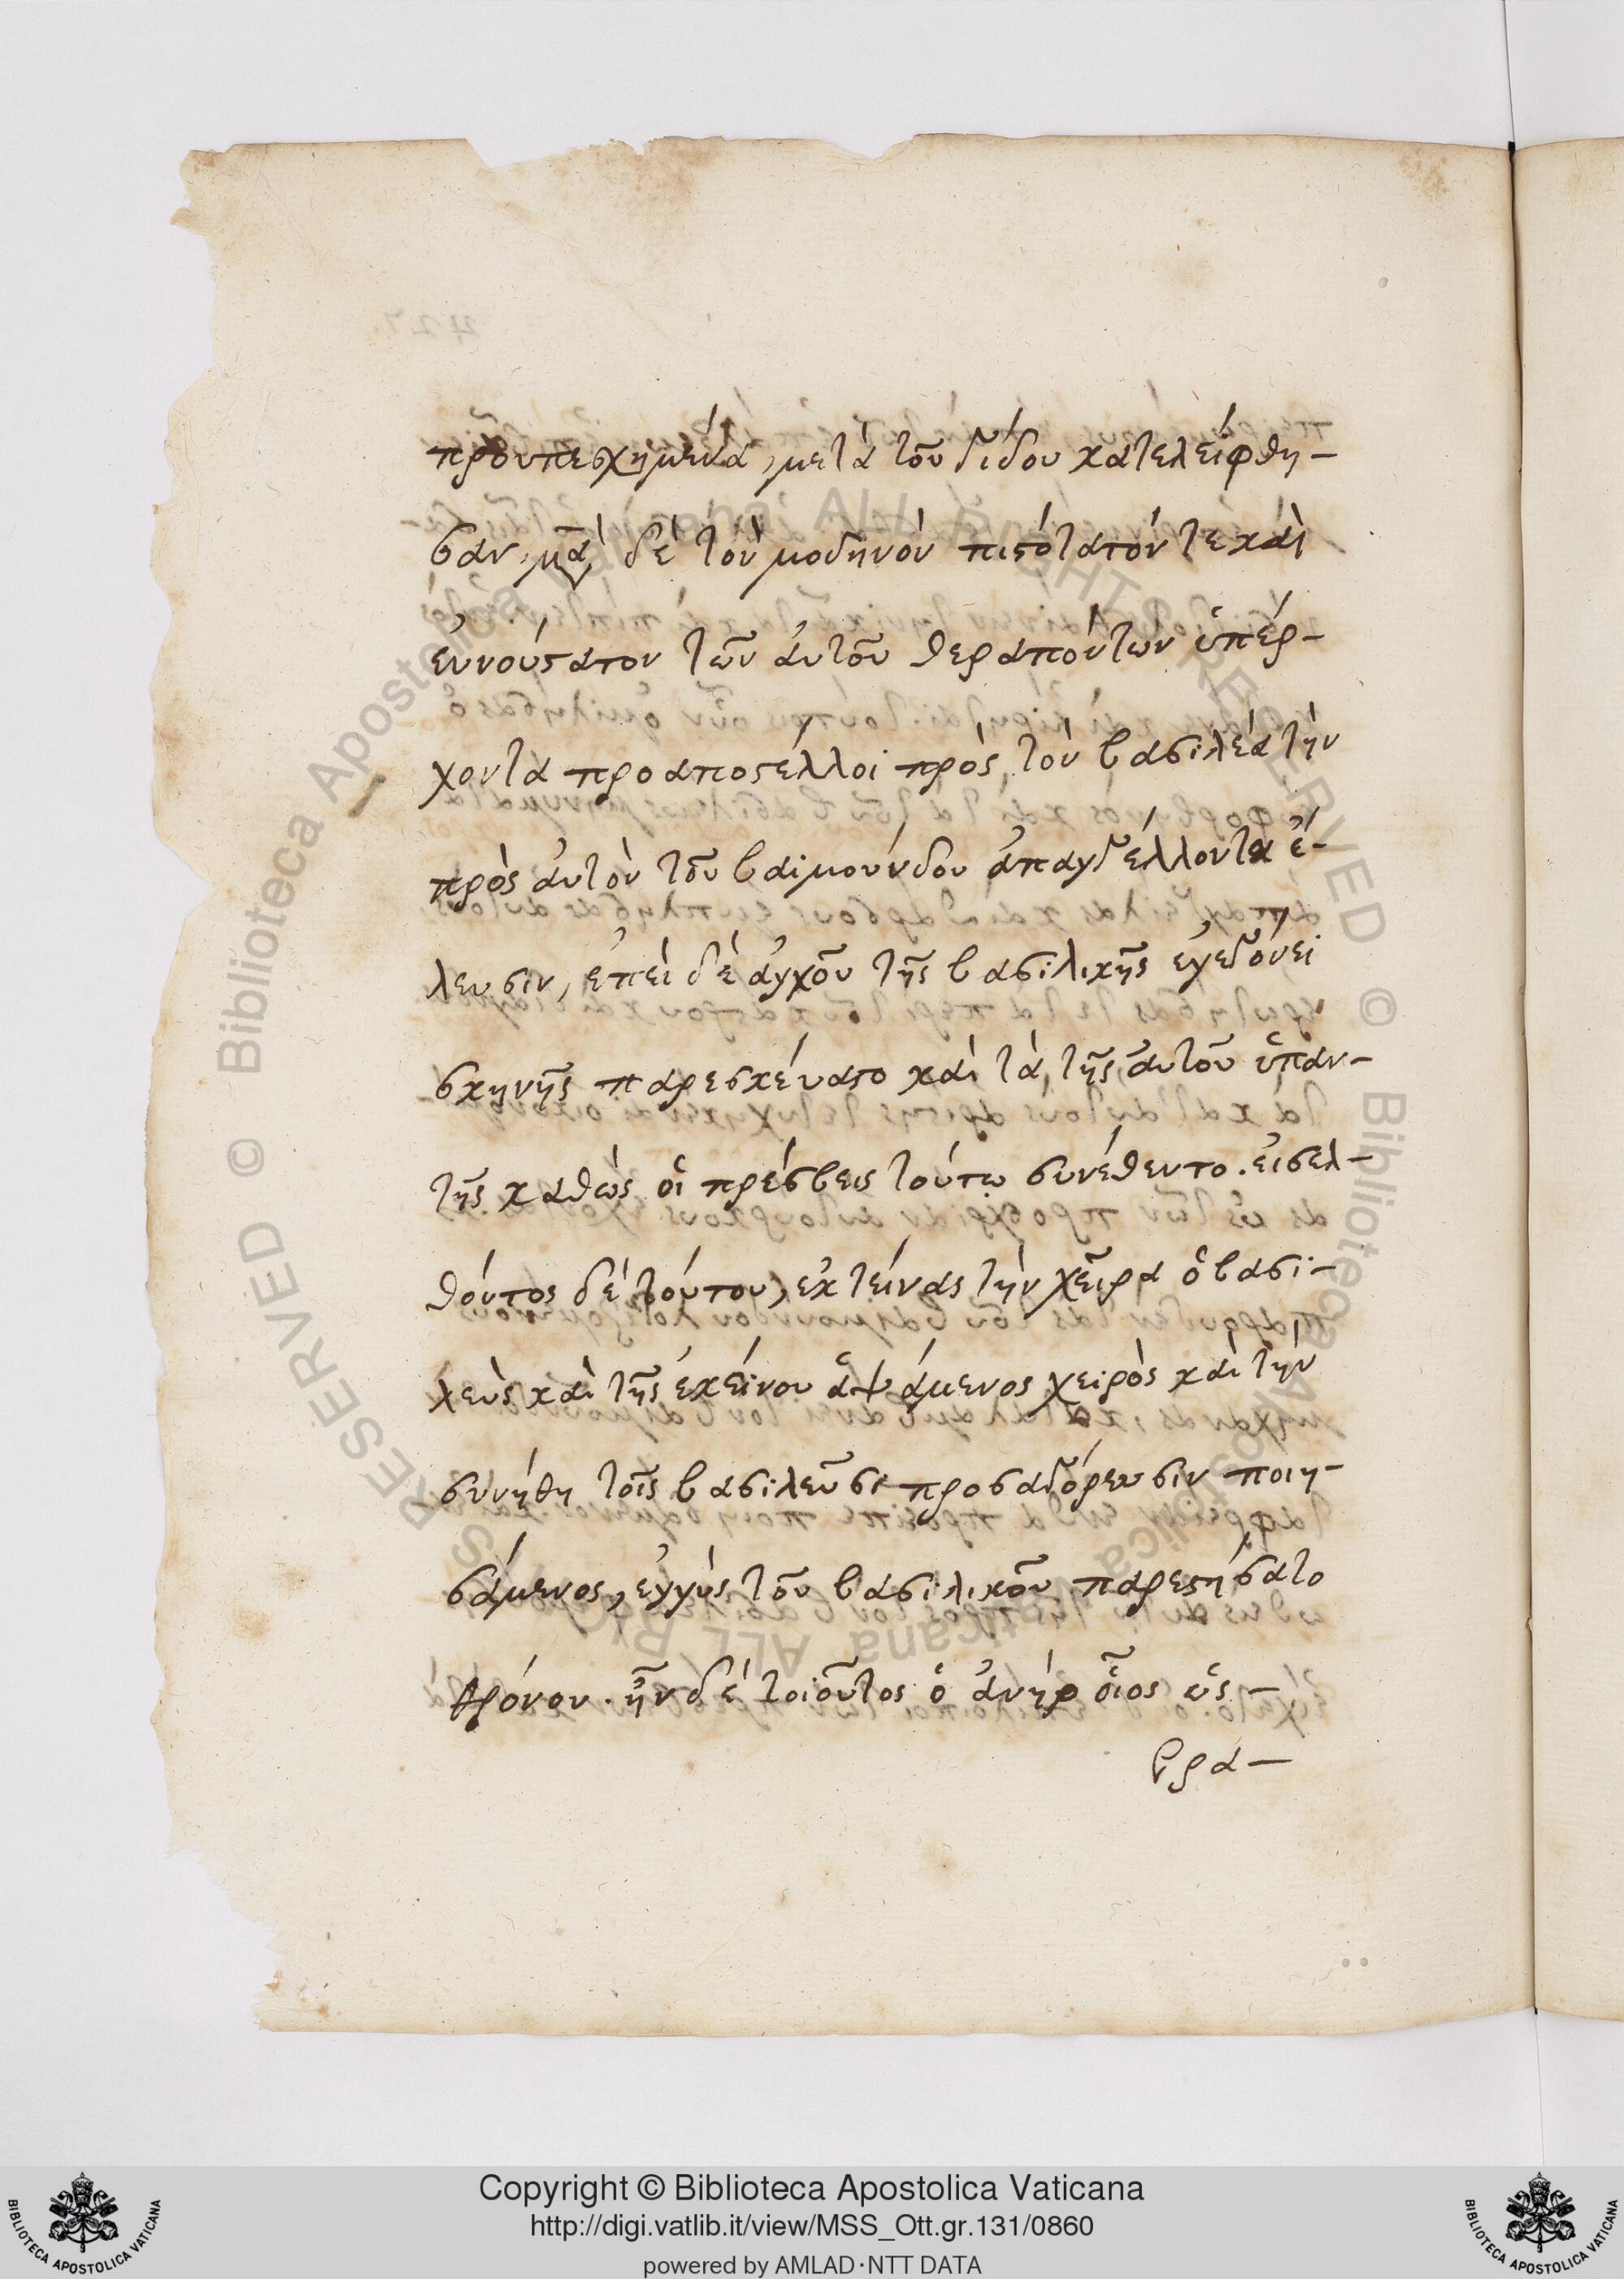 προυπεσχημένα, μετὰ τοῦ γίδου κατελείφθη-
σαν, μα δὲ τὸν μοδηνὸν πιστότατόν τε καὶ
εὐνούστατον τῶν αὐτοῦ θεραπόντων ὑπάρ-
χοντα προαποστέλλοι πρὸς τὸν βασιλέα τὴν
πρὸς αὐτὸν τοῦ βαϊμούνδου ἀπαγγέλλοντα ἐ-
λευσιν, ἐπεὶ δὲ ἀγχοῦ τῆς βασιλικῆς ἐγεγόνει
σκηνῆς παρεσκεύαστο καὶ τὰ τῆς αὐτοῦ ὑπαν-
τῆς καθὼς οἱ πρέσβεις τούτῳ συνέθεντο. εἰσελ-
θόντος δὲ τούτου, ἐκτείνας τὴν χεῖρα ὁ βασι-
λεὺς καὶ τῆς ἐκείνου ἁψάμενος χειρὸς καὶ τὴν
συνήθη τοῖς βασιλεῦσι προσαγόρευσιν ποιη-
σάμενος, ἐγγὺς τοῦ βασιλικοῦ παρεστήσατο
θρόνου. ἦν δὲ τοιοῦτος ὁ ἀνὴρ οἷος οὐς -
βρα-
Copyright © Biblioteca Apostolica Vaticana
http://digi.vatlib.it/view/MSS_Ott.gr.131/0860
powered by AMLAD·NTT DATA
BIBLIOTECA APOSTOLICA VATICANA
BIBLIOTECA APOSTOLICA VATICANA